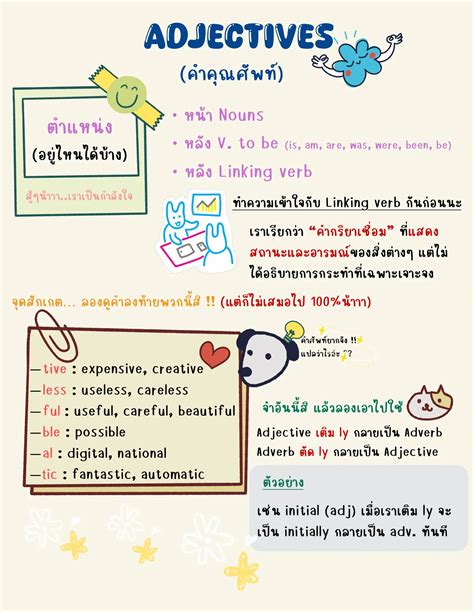 ADJECTIVES
(คำคุณศัพท์)
ตำแหน่ง
(อยู่ไหนได้บ้าง)
สู้ๆน้าาา..เราเป็นกำลังใจ
• หน้า Nouns
• หลัง V. to be (is, am, are, was, were, been, be)
• หลัง Linking verb
ทำความเข้าใจกับ Linking verb กันก่อนนะ
เราเรียกว่า "คำกริยาเชื่อม" ที่แสดง
สถานะและอารมณ์ของสิ่งต่างๆ แต่ไม่
ได้อธิบายการกระทำที่เฉพาะเจาะจง
จุดสังเกต... ลองดูคำลงท้ายพวกนี้สิ !! (แต่ก็ไม่เสมอไป 100%น้าาา)
คำศัพท์ยากจัง !!
แปลว่าไรอ่ะ ??
–tive : expensive, creative
–less : useless, careless
–ful : useful, careful, beautiful
–ble : possible
–al : digital, national
–tic : fantastic, automatic
จำอันนี้สิ แล้วลองเอาไปใช้
Adjective เติม ly กลายเป็น Adverb
Adverb ตัด ly กลายเป็น Adjective
ตัวอย่าง
เช่น initial (adj) เมื่อเราเติม ly จะ
เป็น initially กลายเป็น adv. ทันที